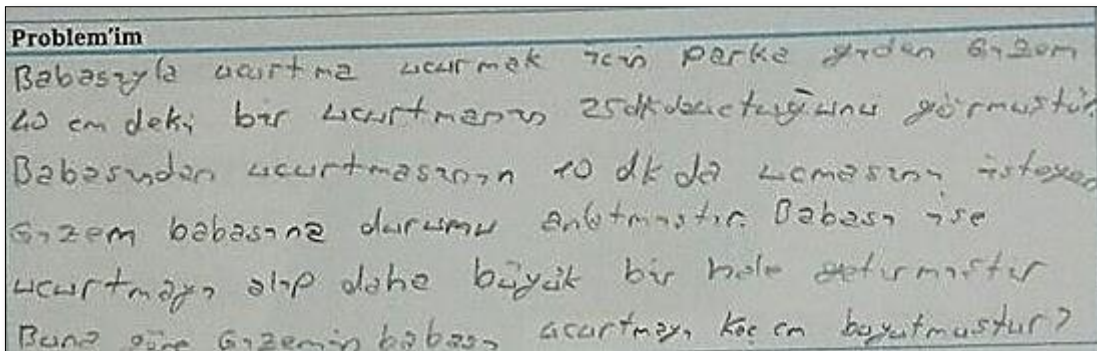 Problem'im
Babasıyla ucurtma ucurmak için parka giden Gizem
40 cm deki bir ucurtmanın 25dkda uctuğunu görmüştür.
Babasından ucurtmasının 10 dk da ucmasını isteyen
Gizem babasına durumu anlatmıştır. Babası ise
ucurtmayı alıp daha büyük bir hale getirmiştir
Buna göre Gizemin babası ucurtmayı kaç cm buyutmustur?